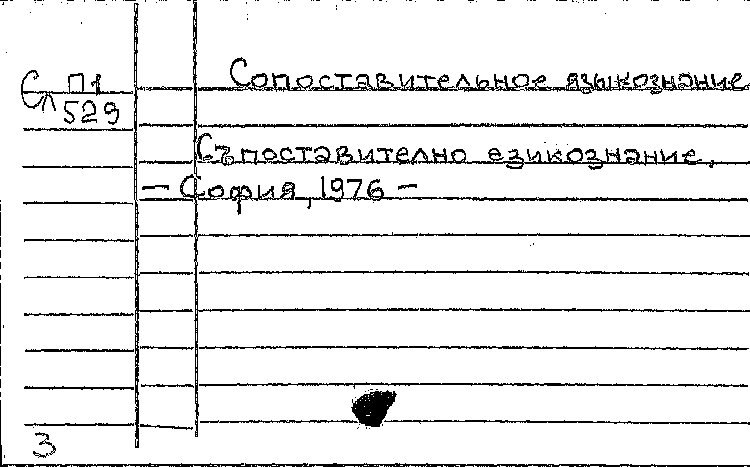 Сл П1
529
Сопоставительное языкознание
Съпоставително езикознание.
— София, 1976 —
3